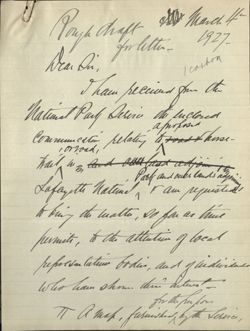 Rough draft March 4th
for letter. 1927.
1 carbon
Dear Sir,
I have received from the
National Park Service the enclosed
a proposed
communication, relating to road & horse-
or road,
trail, in and over and adjoining
Park and over lands adjoining
Lafayette National, & am requested
to bring the matter, so far as time
permits, to the attention of local
representative bodies, and of individuals
who have shown their interest
for the purpose
A map, furnished by the Service